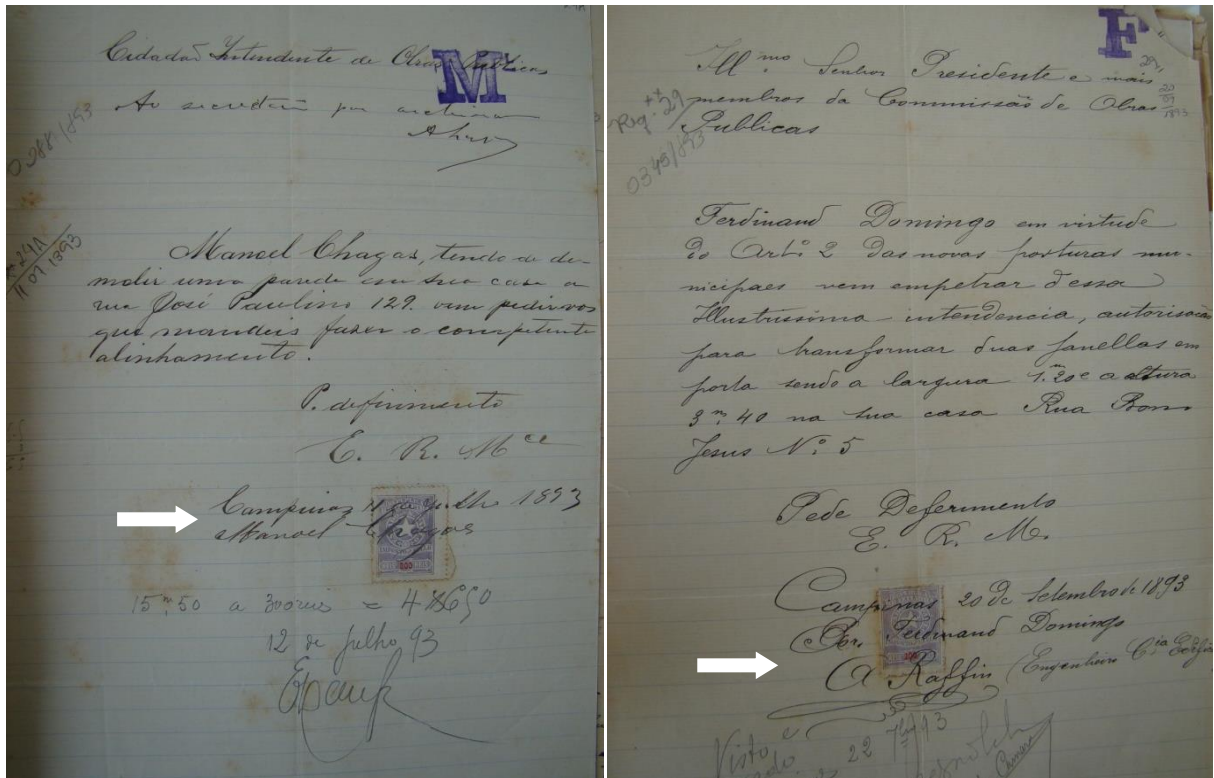 M
Cidadaõ Intendente de Obras Publicas
Ao secretario por
0288/893
11 07 1893
Manoel Chagas, tendo de de-
molir uma parede em sua casa a
rua José Paulino 129. vem pedir-vos
que mandeis fazer o competente
alinhamento.
P. deferimento
E. R. Mce
Campinas 11 de Julho 1893
Manoel Chagas
200
15m,50 a 300 reis = 4$650
12 de Julho 93
F
Illmo Senhor Presidente e mais
membros da Commissão de Obras
Publicas
Req. 29
0345/893
Ferdinand Domingo em virtude
do Artº 2 das novas posturas mu-
nicipaes vem empetrar d'essa
Illustrissima intendencia, autorisacão
para transformar duas janellas em
porta sendo a largura 1.m20 e a altura
3m,40 na sua casa Rua Bom
Jesus Nº 5
Pede Deferimento
E. R. M.
Campinas 20 de Setembro de 1893
Por. Ferdinand Domingo
A Raffin (Engenheiro Cia
Visto e
22 7bro 93